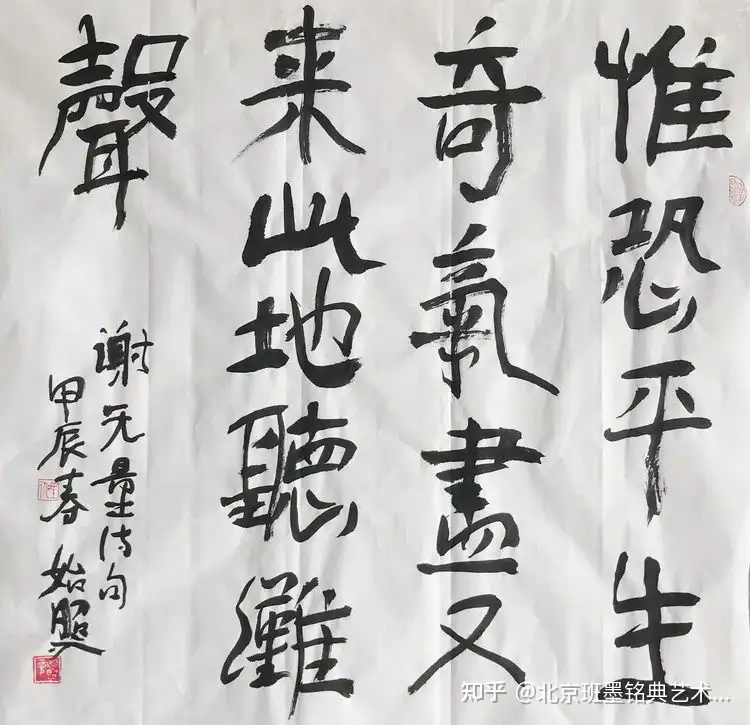 惟恐平生
奇氣盡又
来此地聽灘
聲
謝无量诗句
甲辰春 始照
知乎 @北京班墨铭典艺术...